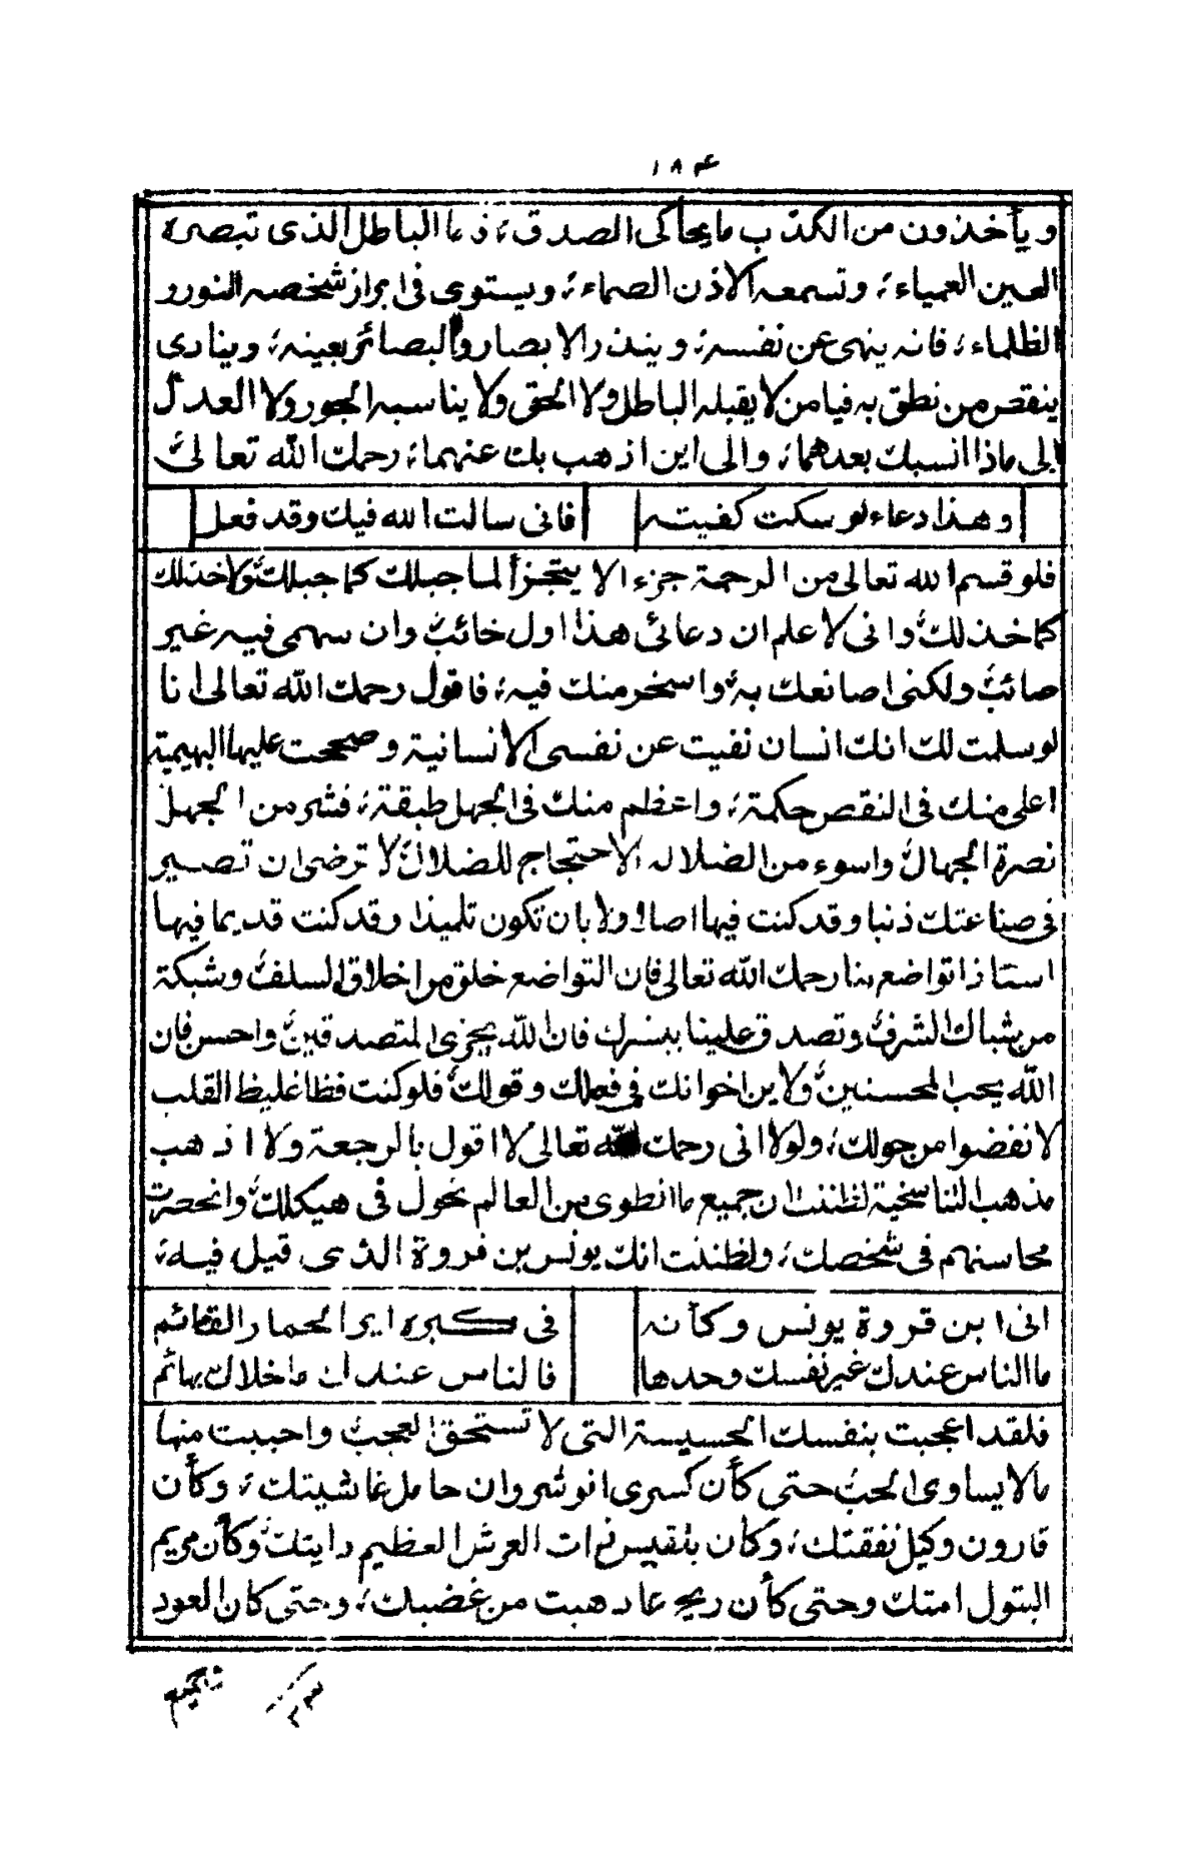 ١٨٤
ويأخذون من الكذب ما يحاكى الصدق، ذما الباطل الذى تبصره
العين العمياء، وتسمعه الاذن الصماء، ويستوى فى ابراز شخصه النور و
الظلماء، فانه ينهى عن نفسه، وينذر الابصار والبصائر بعينه، وينادى
ينقص من نطق به فيا من لا يقبله الباطل ولا الحق ولا يناسبه الجور ولا العدل
الى ماذا انسبك بعدهما، والى اين اذهب بك عنهما، رحمك الله تعالى
وهذا دعاء لو سكت كفيته فانى سالت الله فيك وقد فعل
فلو قسم الله تعالى من الرحمة جزء الا يتجزأ لما جبلك كما جبلك ولا خذلك
كما خذلك وانى لا علم ان دعائى هذا اول خائب وان سهمى فيه غير
صائب ولكنى اصانعك به واسخر منك فيه، فاقول رحمك الله تعالى انا
لو سلمت لك انك انسان نفيت عن نفسى الانسانية وصححت عليها البهيمية
اعلى منك فى النقص حكمة، واعظم منك فى الجهل طبقة، فشر من الجهل
نصرة الجهال واسوء من الضلالة الاحتجاج للضلال لا ترضى ان تصير
فى صناعتك ذنبا وقد كنت فيها اصلا ولا بان تكون تلميذا وقد كنت قديما فيها
استاذا تواضع بنا رحمك الله تعالى فان التواضع خلق من اخلاق السلف وشبكة
من شباك الشرف وتصدق علينا ببسرك فان الله يجزى المتصدقين واحسن فان
الله يحب المحسنين ولاين اخوانك فى فعلك وقولك فلو كنت فظا غليظ القلب
لانفضوا من حولك، ولولا انى رحمك الله تعالى لا اقول بالرجعة ولا اذهب
مذهب التناسخية لظننت ان جميع ما انطوى من العالم تحول فى هيكلك وانحصرت
محاسنهم فى شخصك، ولظننت انك يونس بن فروة الذى قيل فيه،
انى ابن فروة يونس وكأنه فى كبره اير الحمار القائم
ما الناس عندك غير نفسك وحدها فالناس عندك ما خلاك بهائم
فلقد اعجبت بنفسك الخسيسة التى لا تستحق العجب واحببت منها
مالا يساوى الحب حتى كأن كسرى انوشروان حامل غاشيتك، وكأن
قارون وكيل نفقتك، وكأن بلقيس ذات العرش العظيم دايتك وكأن مريم
البتول امتك وحتى كأن ريح عاد هبت من غضبك، وحتى كان العود